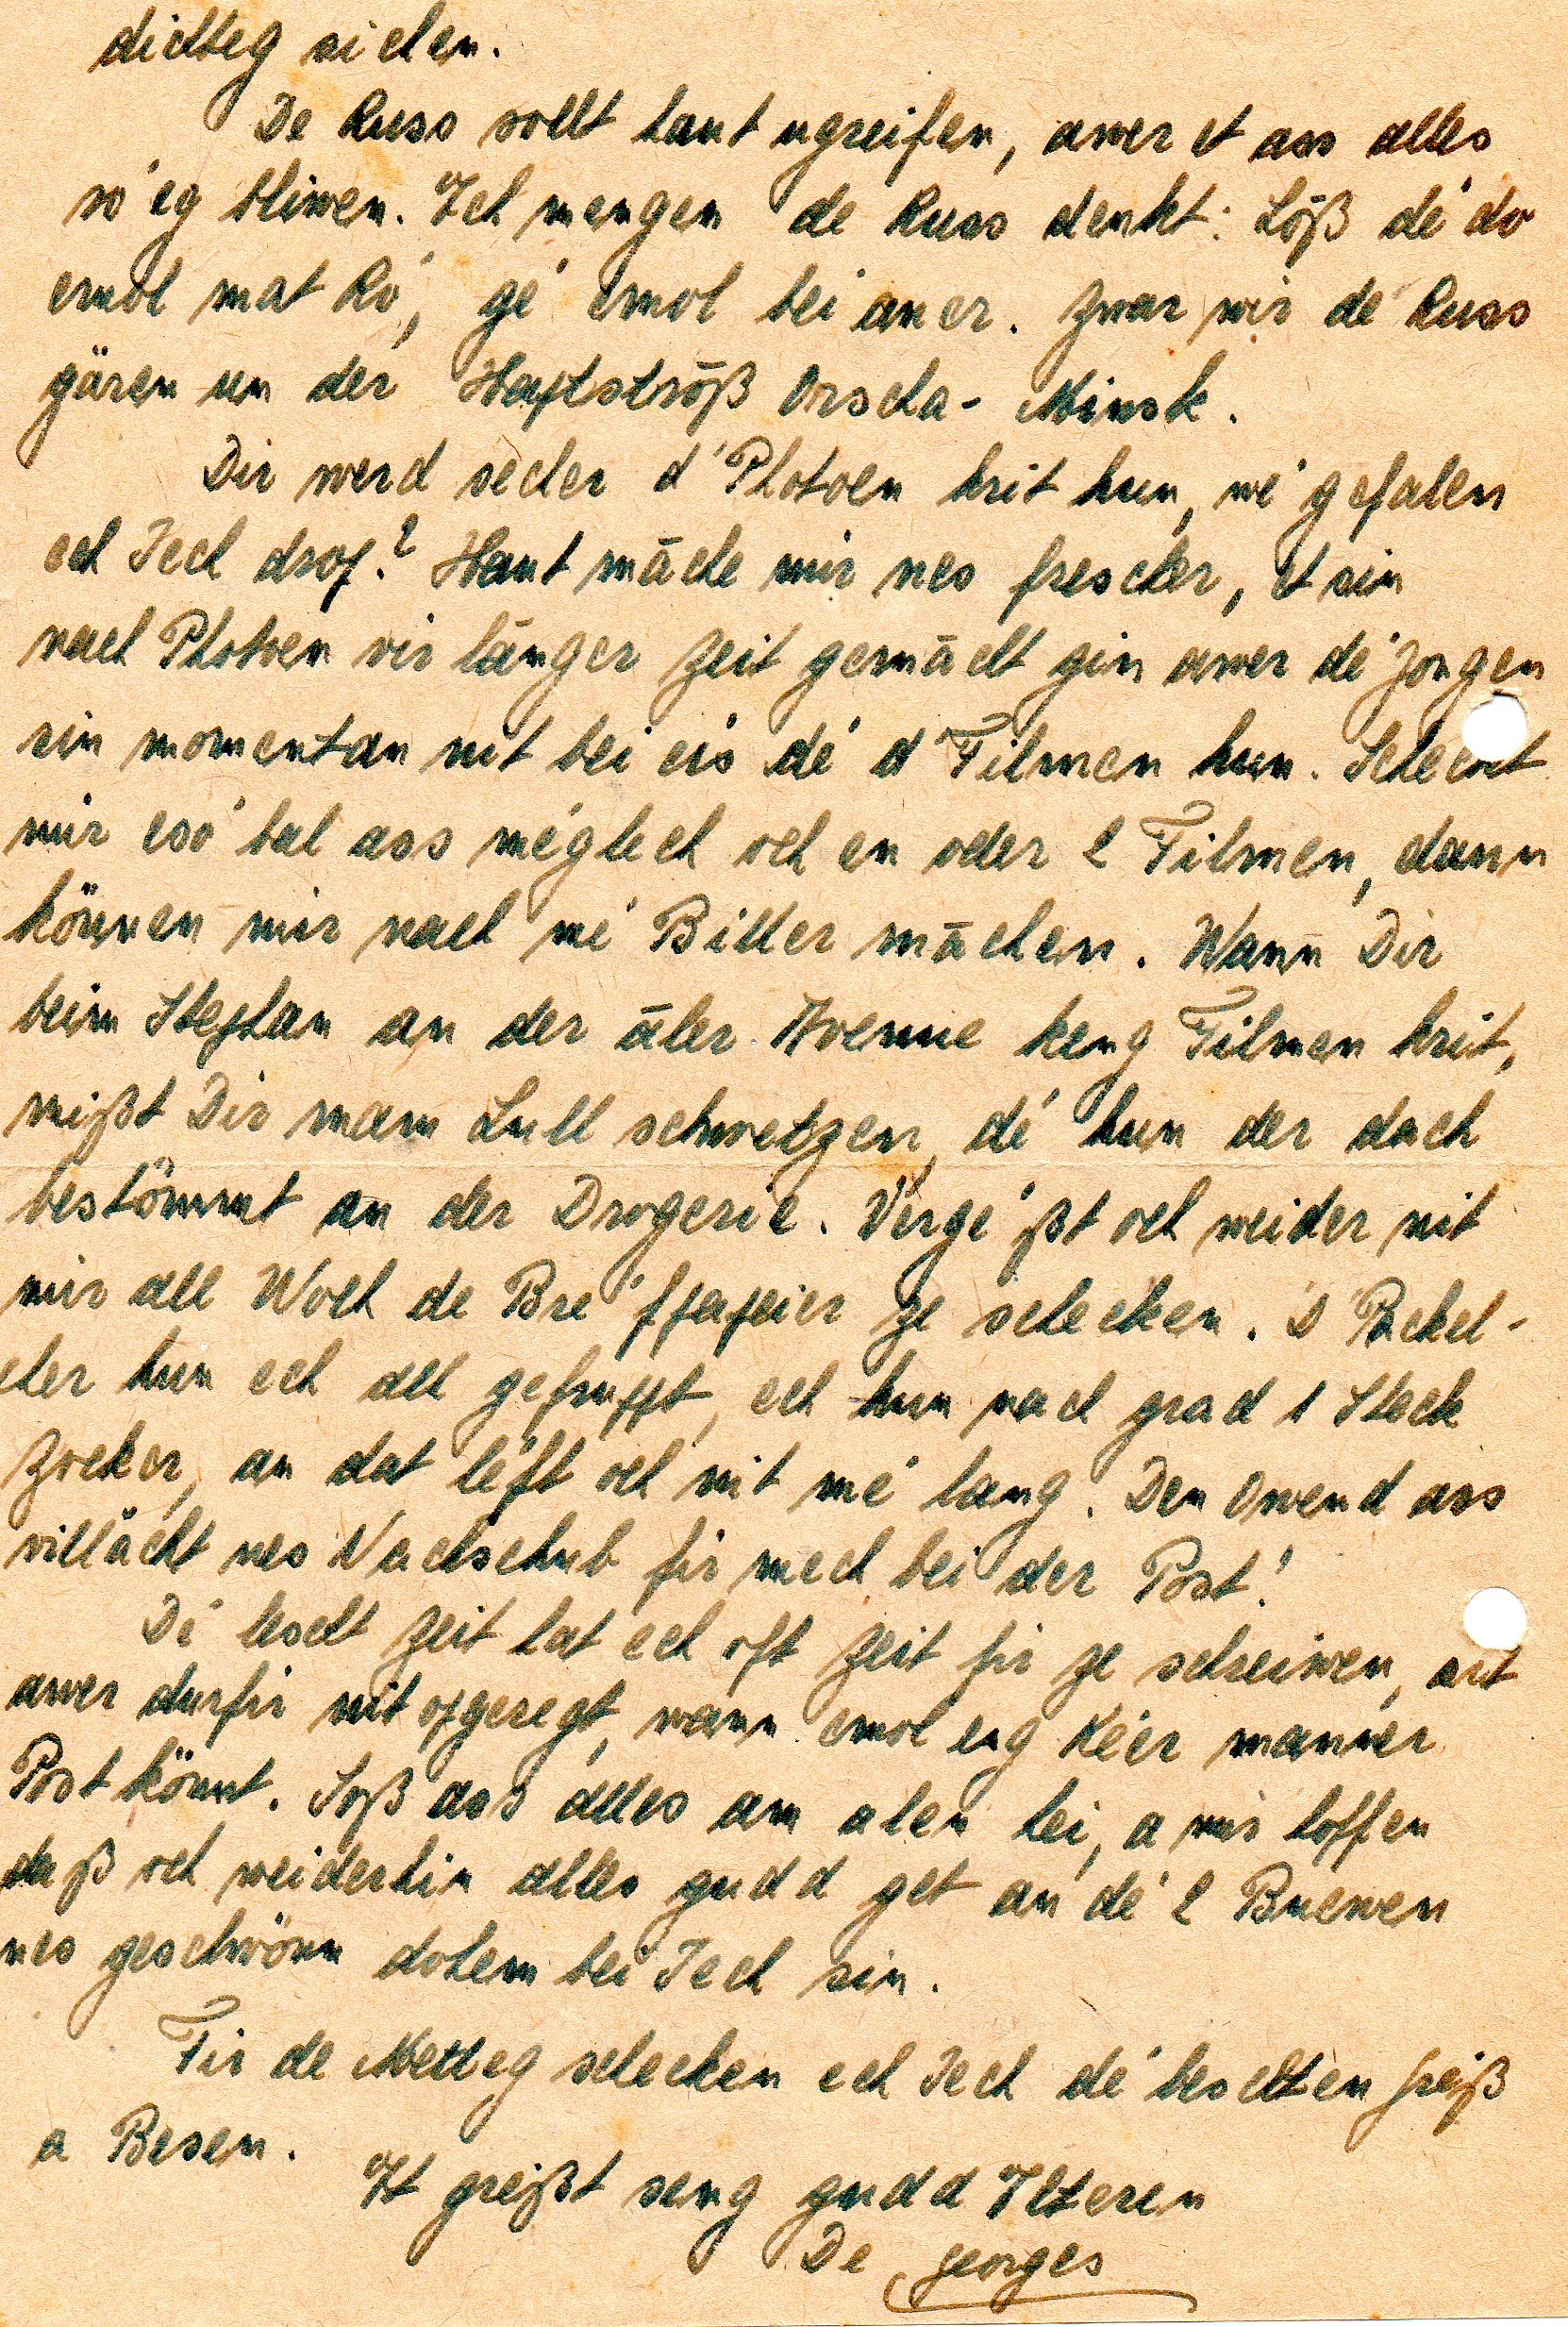 dichteg sichen.
De Russ sollt haut ugreifen, awer et ass alles
ró eg bliwen. Ech mengen de Russ denkt: Löß dé do
emol mat Ró, gé emol bei aner. Zwar wir de Russ
gären un der Haptströß Orscha-Minsk.
Dir werd secher d'Photoen krit hun, wé gefalen
ech Iech drop? Haut mãche mir nes frescher, et sin
nach Photoen vir länger Zeit gemãcht gin awer dé Jongen
sin momentan nit bei eis dé d'Filmen hun. Scheckt
mir esó bal ass méglech och en oder 2 Filmen, dann
können mir nach mé Biller mãchen. Wann Dir
beim Stephan an der ãler Avenue keng Filmen krit,
mißt Dir mam Lull schwetzen, dé hun der dach
bestömmt an der Drogerie. Vergéßt och weider nit
mir all Woch de Bréfpapeier ze schecken. D'Päckel-
cher hun ech all gefruppt, ech hun nach grad 1 Steck
Zocker, an dat leͤft och nit mé lang. Den Owend ass
villächt nes Nachschub fir mech bei der Post!
Dé lescht Zeit hat ech oft Zeit fir ze schreiwen, sit
awer durfir nit opgeregt, wann emol eng Kéer manner
Post könnt. Soß ass alles am alen hei, a mir hoffen
daß och weiderhin alles gudd get an dé 2 Buewen
nes geschwönn dohem bei Iech sin.
Fir de Metteg schecken ech Iech dé beschten Greiß
a Besen.
Et greißt seng gudd Elteren
De Georges